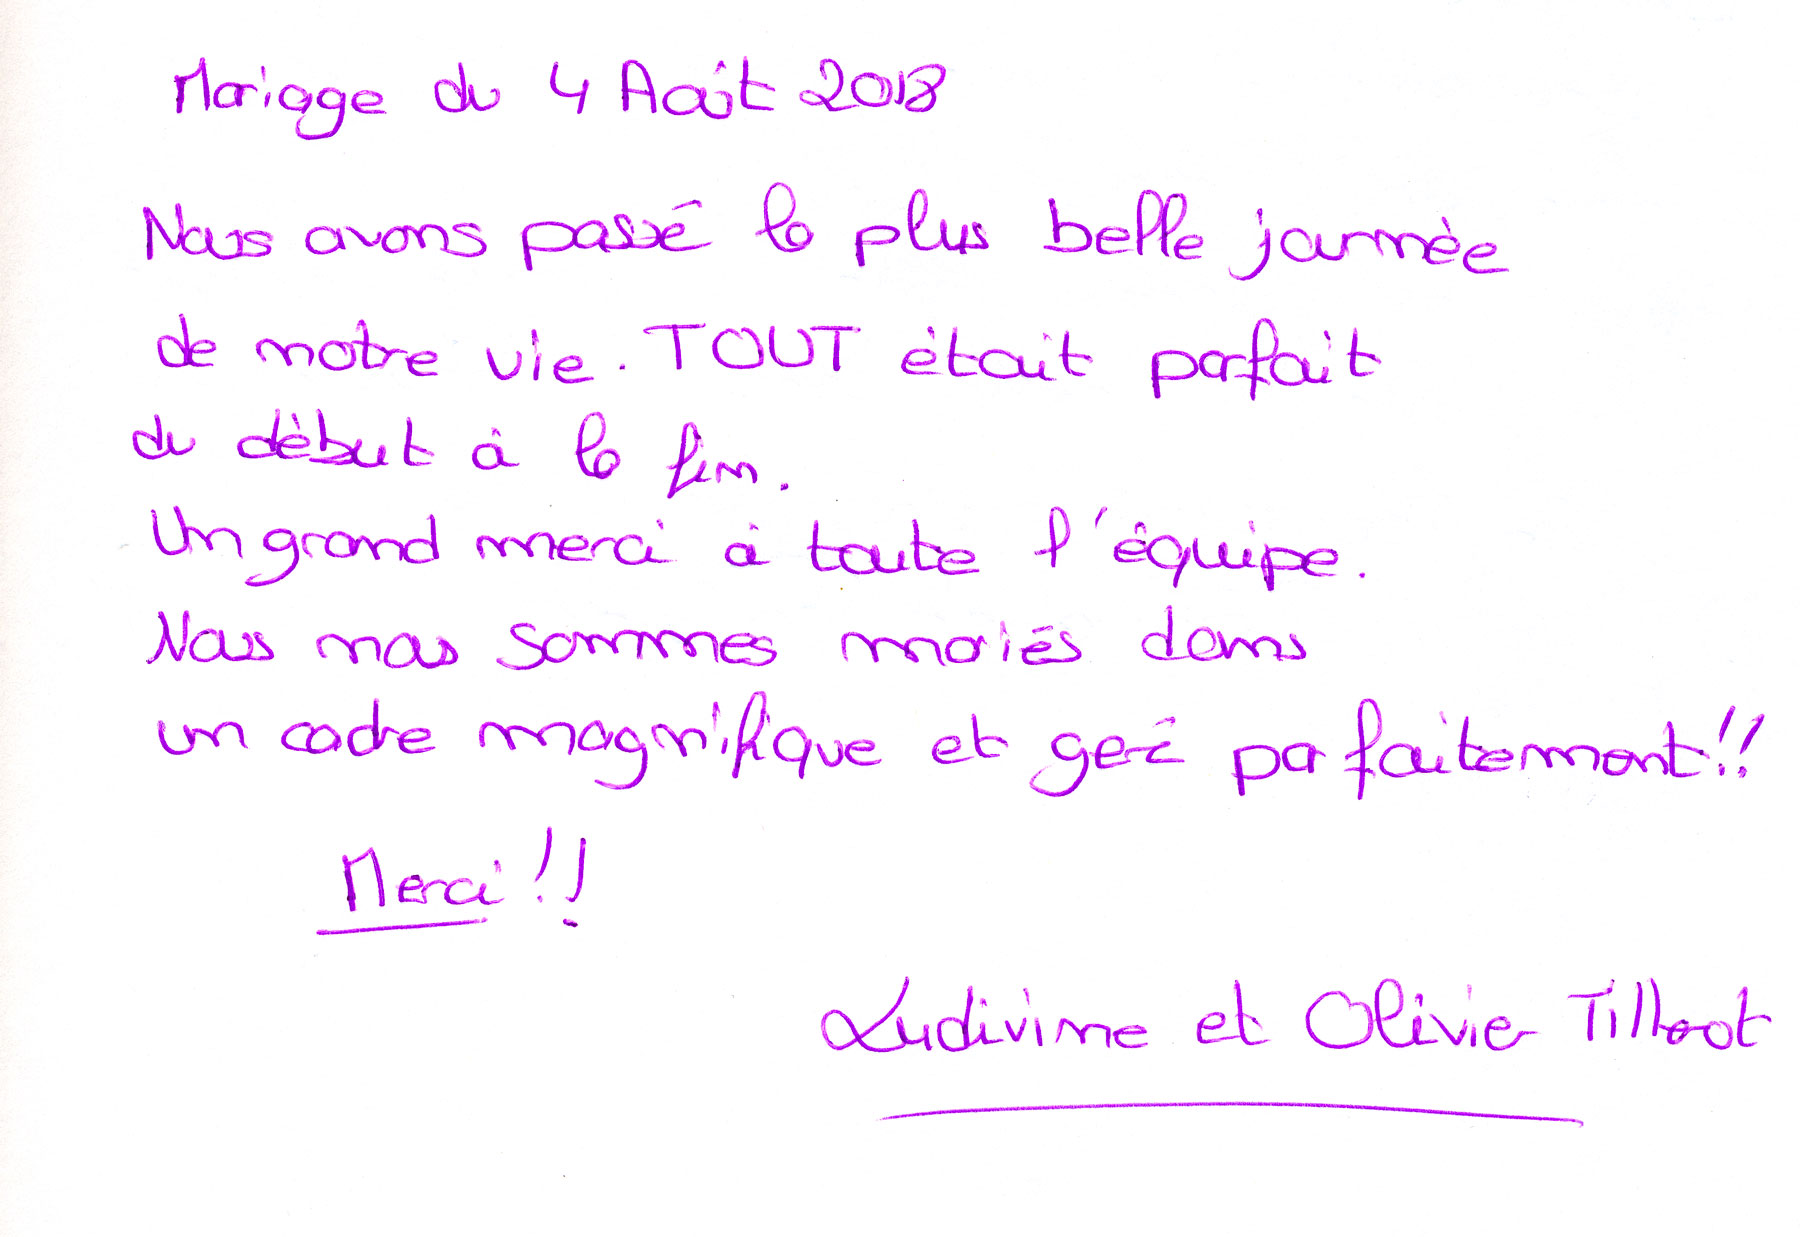 Mariage du 4 Août 2018
Nous avons passé la plus belle journée
de notre vie. TOUT était parfait
du début à la fin.
Un grand merci à toute l'équipe.
Nous nous sommes mariés dans
un cadre magnifique et géré parfaitement!!
Merci!!
Ludivine et Olivier